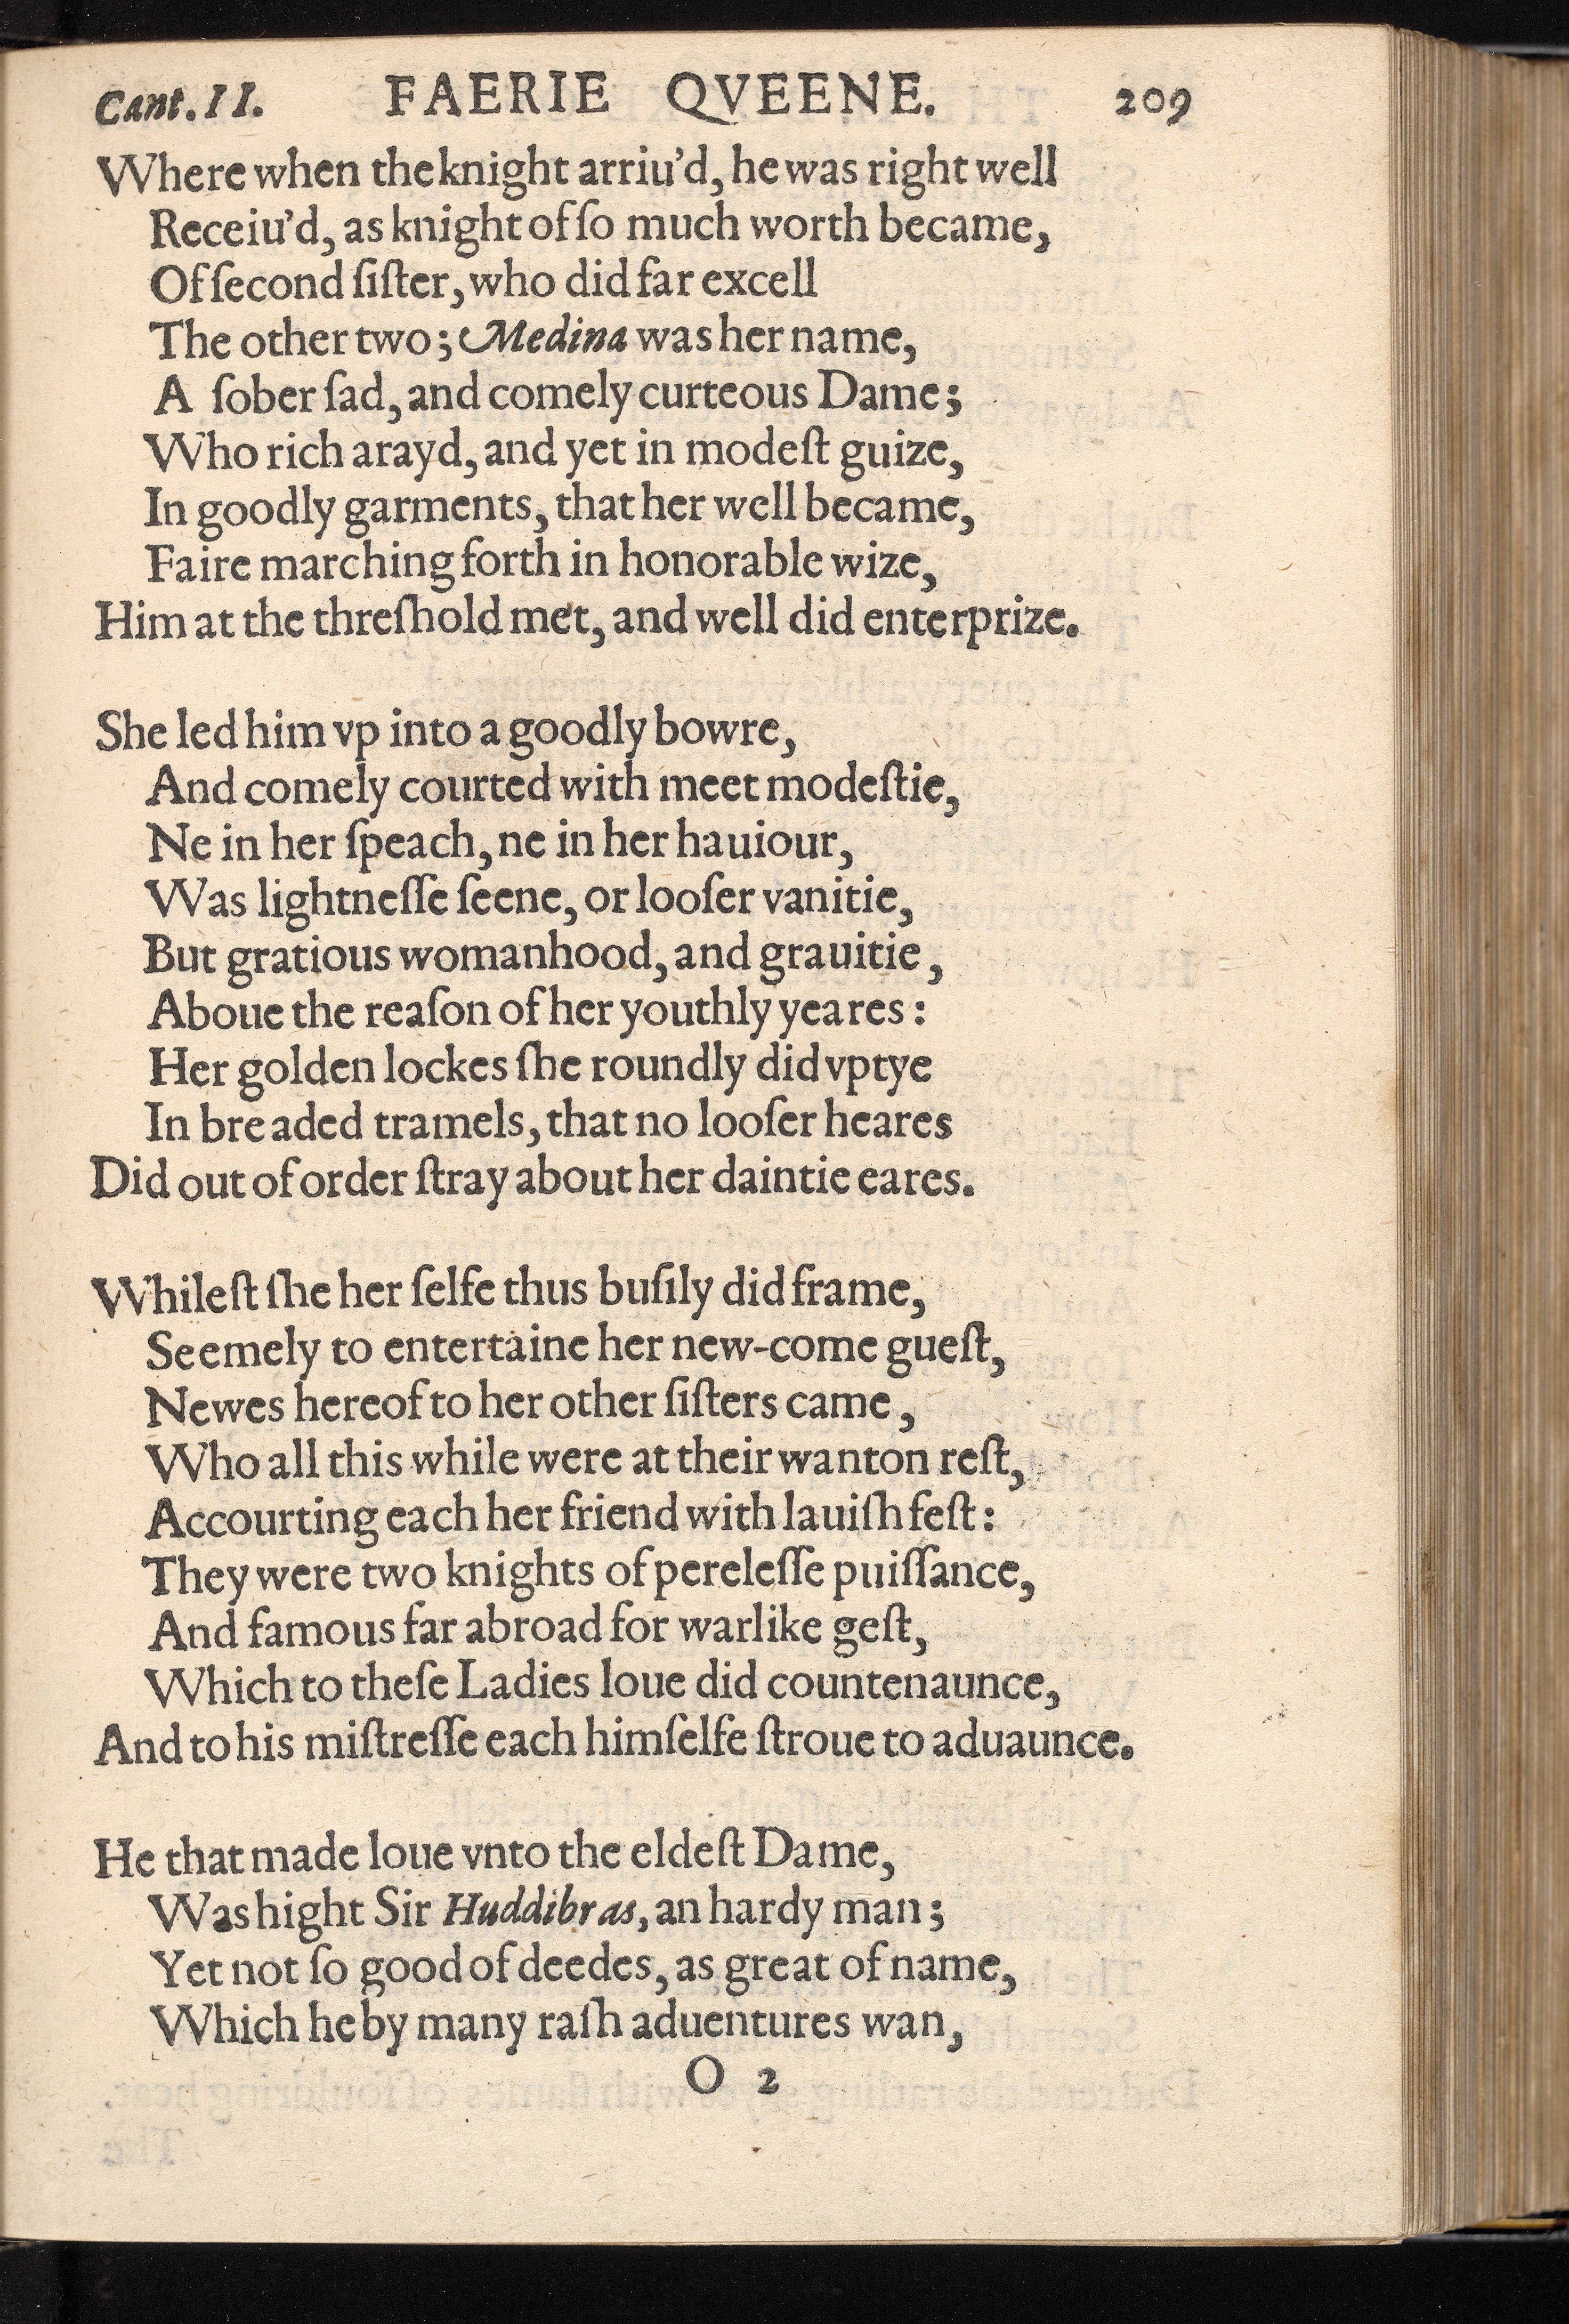 Cant. II. FAERIE QVEENE. 209
Where when the knight arriu'd, he was right well
Receiu'd, as knight of ſo much worth became,
Of ſecond ſiſter, who did far excell
The other two; Medina was her name,
A ſober ſad, and comely curteous Dame;
Who rich arayd, and yet in modeſt guize,
In goodly garments, that her well became,
Faire marching forth in honorable wize,
Him at the threſhold met, and well did enterprize.

She led him vp into a goodly bowre,
And comely courted with meet modeſtie,
Ne in her ſpeach, ne in her hauiour,
Was lightneſſe ſeene, or looſer vanitie,
But gratious womanhood, and grauitie,
Aboue the reaſon of her youthly yeares:
Her golden lockes ſhe roundly did vptye
In breaded tramels, that no looſer heares
Did out of order ſtray about her daintie eares.

Whileſt ſhe her ſelfe thus buſily did frame,
Seemely to entertaine her new-come gueſt,
Newes hereof to her other ſiſters came,
Who all this while were at their wanton reſt,
Accourting each her friend with lauiſh feſt:
They were two knights of pereleſſe puiſſance,
And famous far abroad for warlike geſt,
Which to theſe Ladies loue did countenaunce,
And to his miſtreſſe each himſelfe ſtroue to aduaunce.

He that made loue vnto the eldeſt Dame,
Was hight Sir Huddibras, an hardy man;
Yet not ſo good of deedes, as great of name,
Which he by many raſh aduentures wan,
O 2